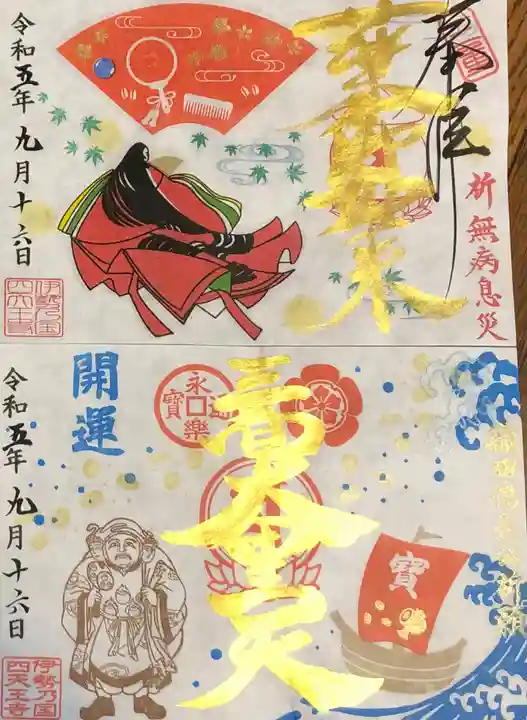 奉拝
薬師如来
祈無病息災
令和五年九月十六日
伊勢乃国
四天王寺
永樂通寶
寶
開運
令和五年九月十六日
伊勢乃国
四天王寺